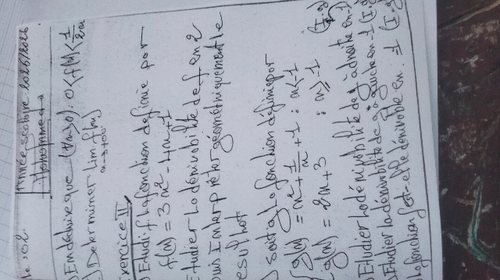 Année scolaire 2025/2026
Mohammed
Endéduire que (∀x>0) : 0<f(x)<1/2x
Déterminer lim f(x)
x→+∞
Exercice II
soit f la fonction définie par
f(x) = 3x² - 4x - 1
Etudier la dérivabilité de f en 2
puis Interpréter géométriquement le
résultat
soit g la fonction définie par
g(x) = x² + 1/x + 1 ; x<-1
g(x) = 2x+3 ; x≥-1
Etudier la dérivabilité de g à droite en -1
Etudier la dérivabilité de g à gauche en -1
la fonction g est-elle dérivable en -1